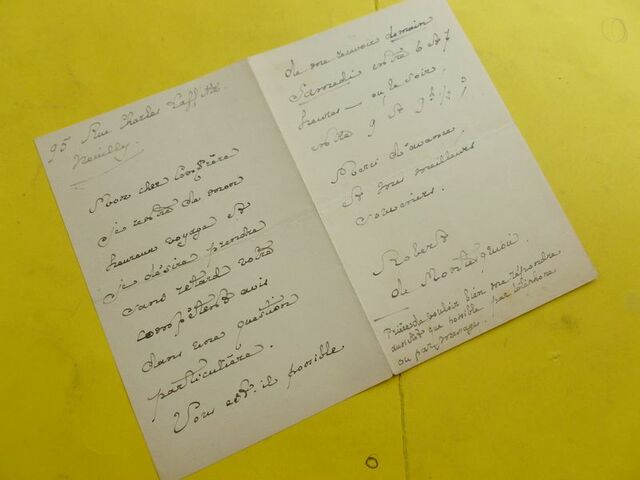 95 Rue Charles Laffitte.
Neuilly.
Mon cher Confrère
Je rentre de mon
heureux voyage et
je désire prendre
sans retard votre
compétent avis
dans une question
particulière.
Vous est-il possible
de me recevoir demain
Samedi entre 6 et 7
heures — ou le soir,
entre 9 et 9h 1/2 ?
Merci d'avance,
et tous meilleurs
souvenirs.
Robert
de Montesquiou.
Prière de vouloir bien me répondre
aussitôt que possible par téléphone
ou par message.